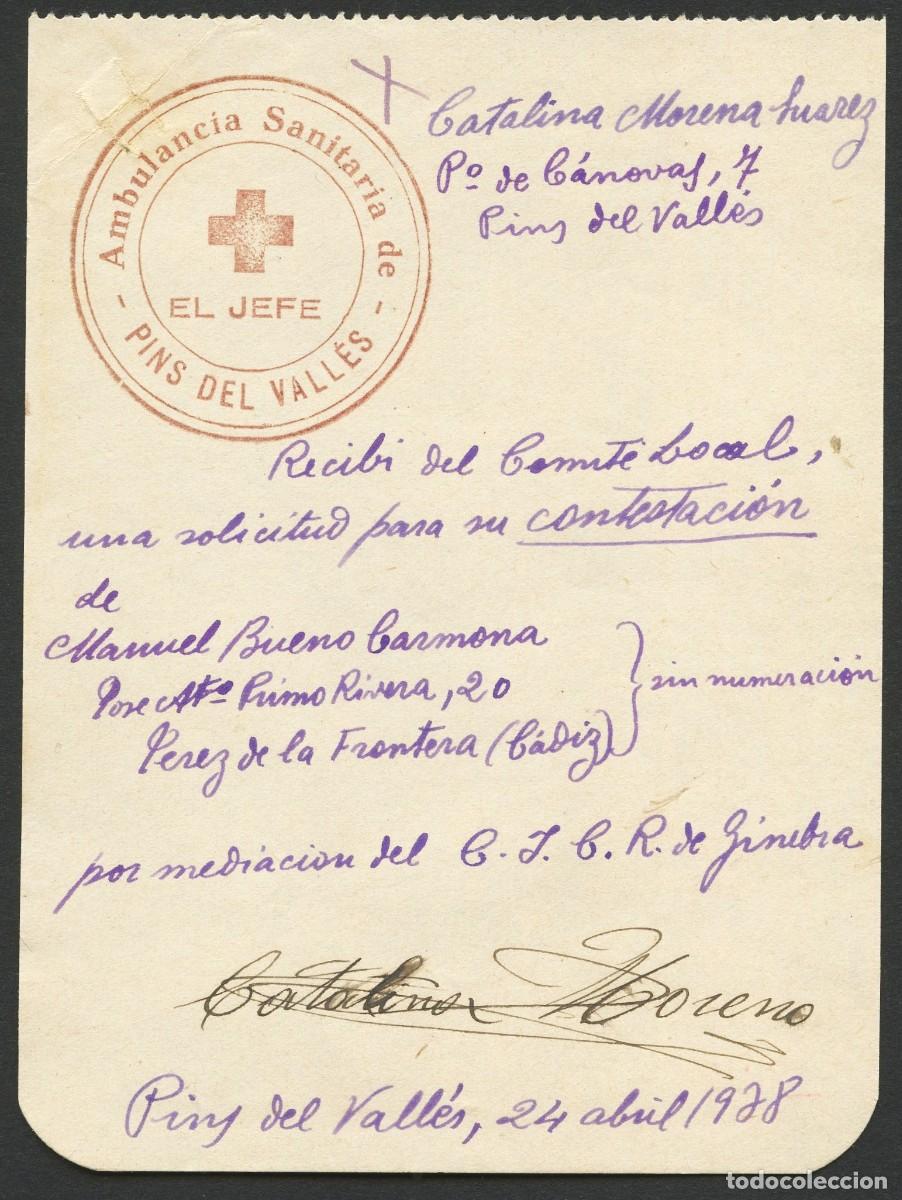 Ambulancia Sanitaria de
EL JEFE
- PINS DEL VALLÉS -
Catalina Morena Suarez
Pº de Cánovas, 7
Pins del Vallés
Recibi del Comité Local,
una solicitud para su contestación
de
Manuel Bueno Carmona
Jose Atº Primo Rivera, 20
Jerez de la Frontera (Cádiz)
sin numeración
por mediacion del C. I. C. R. de Ginebra
Catalina Moreno
Pins del Vallés, 24 abril 1938
todocoleccion